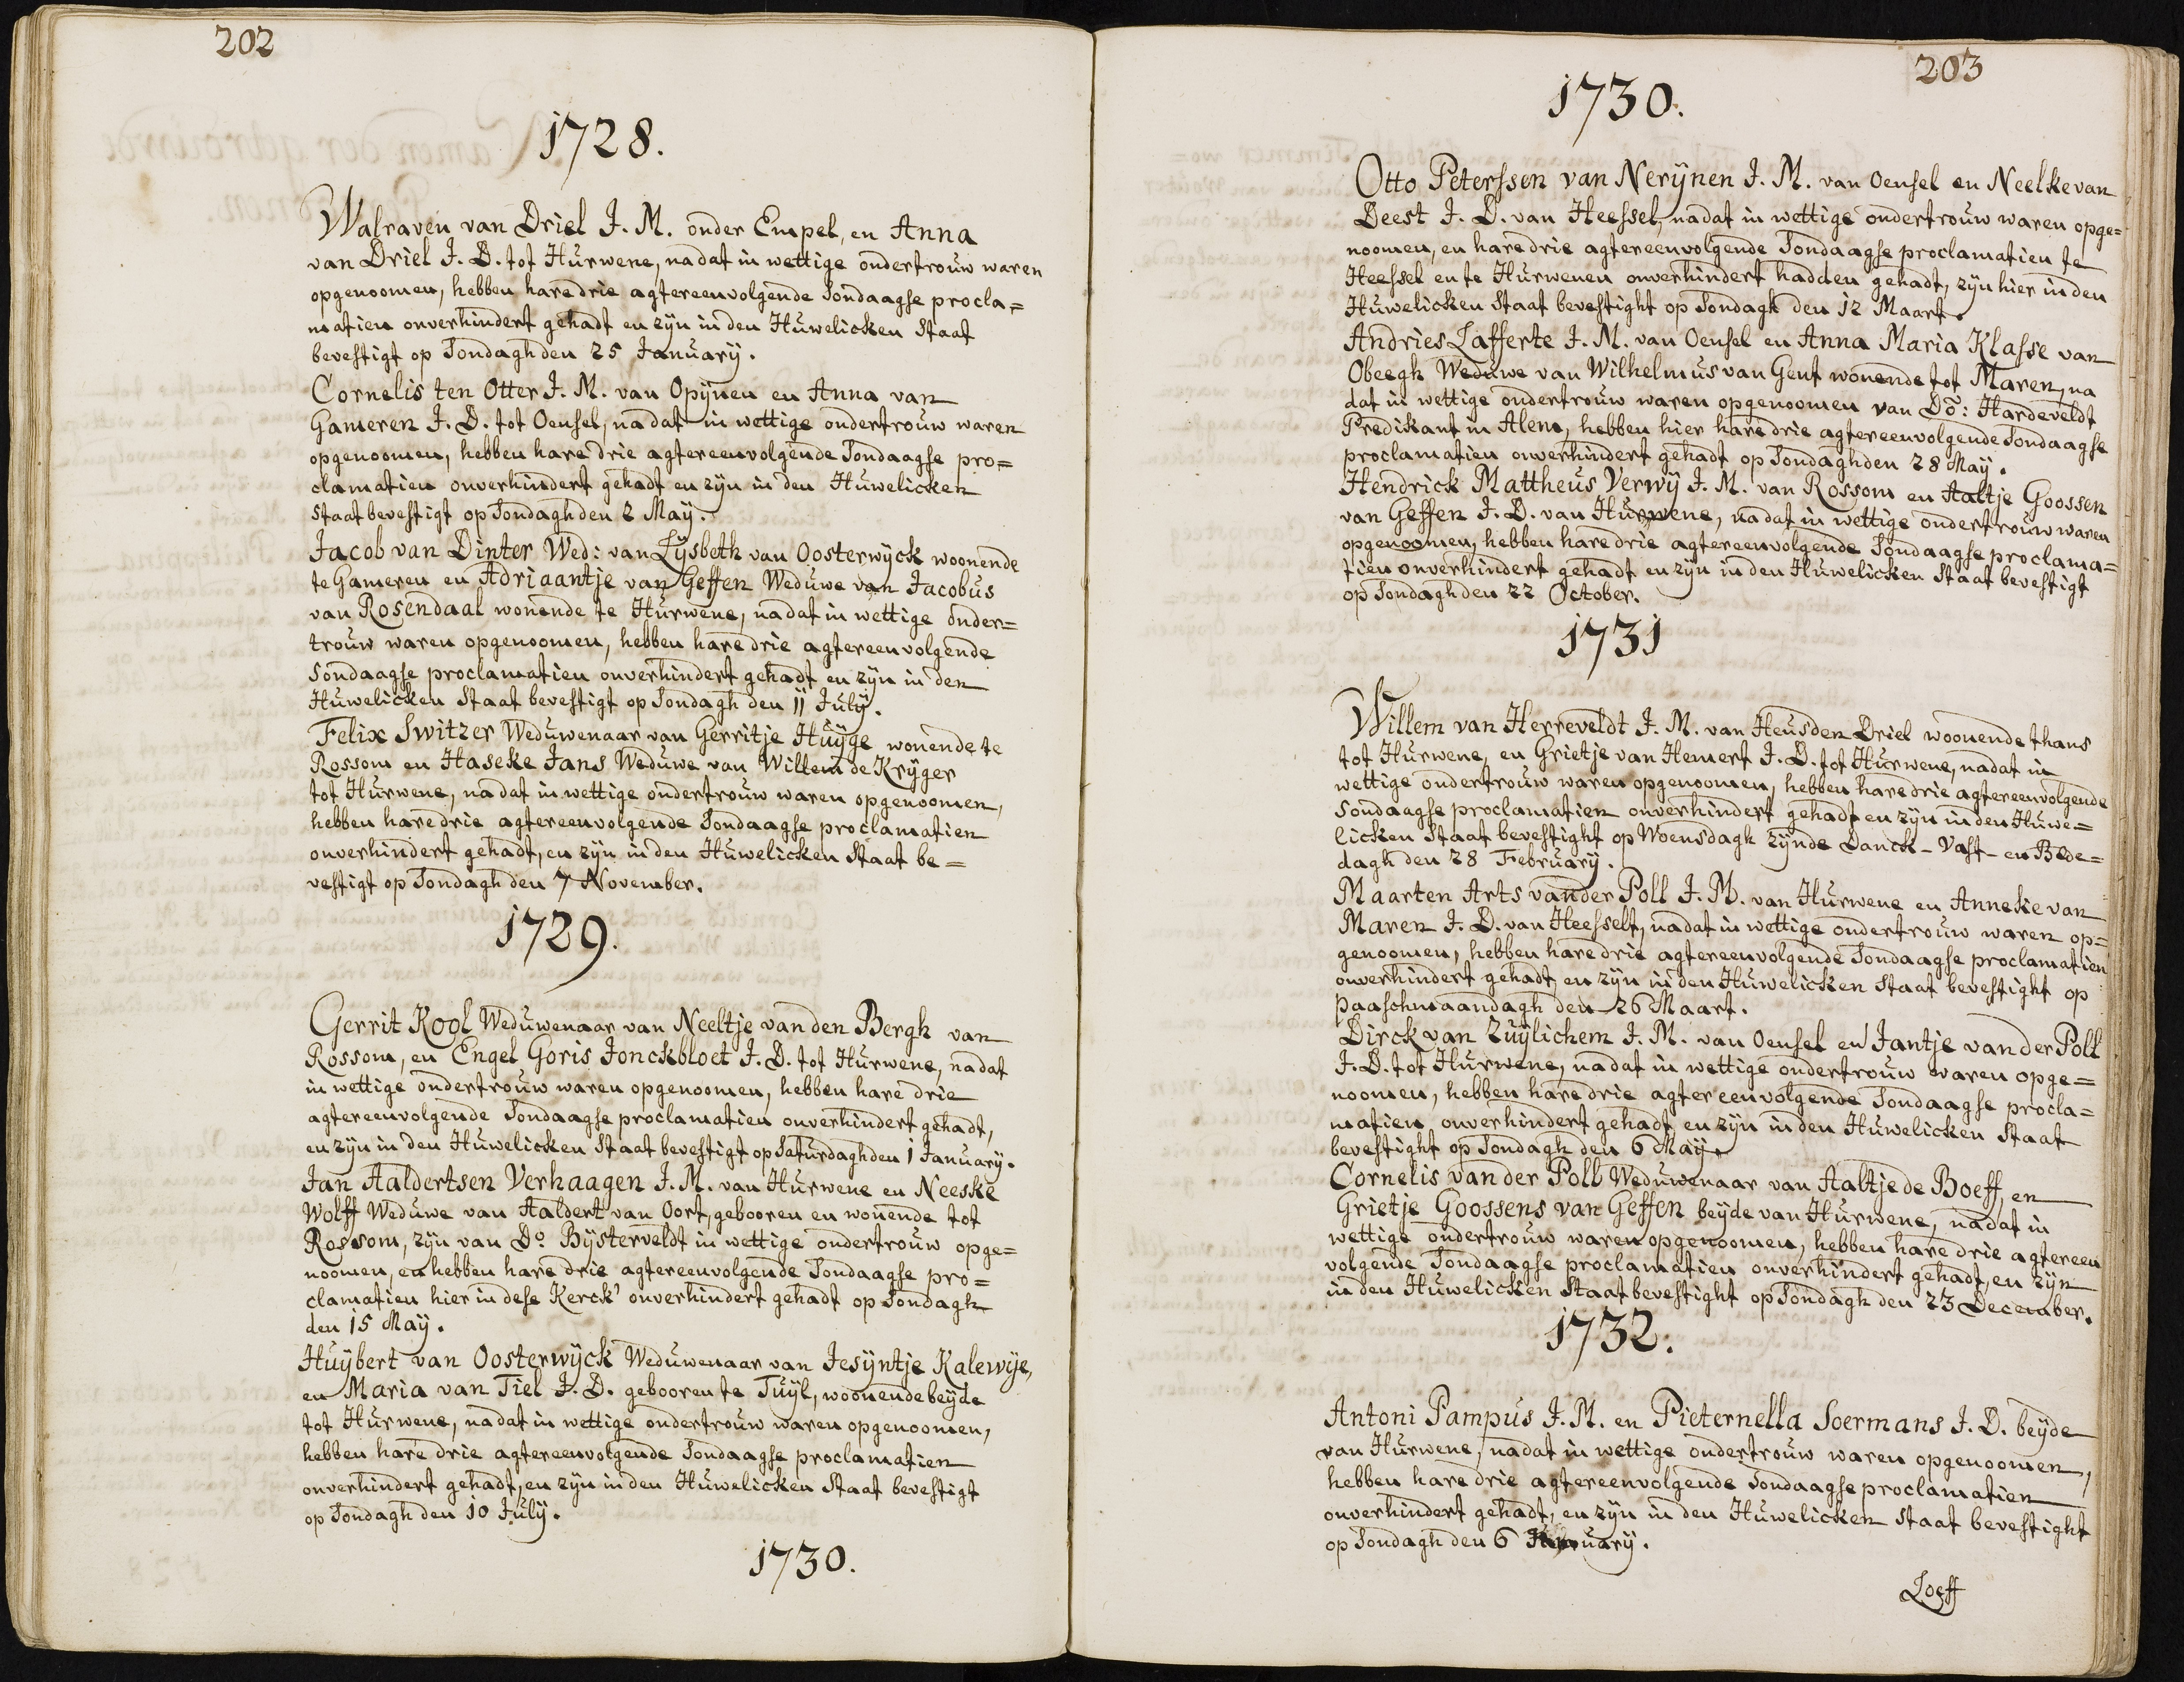 202
1728.
Walraven van Driel J. M. onder Empel, en Anna
van Driel J. D. tot Hurwene, nadat in wettige ondertrouw waren
opgenoomen, hebben hare drie agtereenvolgende Sondaagse procla=
matien onverhindert gehadt en zijn in den Huwelicken Staat
bevestigt op Sondagh den 25 January.
Cornelis ten Otter J. M. van Opijnen en Anna van
Gameren J. D. tot Oensel, nadat in wettige ondertrouw waren
opgenoomen, hebben hare drie agtereenvolgende Sondaagse pro=
clamatien onverhindert gehadt en zijn in den Huwelicken
Staat bevestigt op Sondagh den 2 May.
Jacob van Dinter Wed: van Lysbeth van Oosterwyck woonende
te Gameren en Adriaantje van Geffen Weduwe van Jacobus
van Rosendaal wonende te Hurwene, nadat in wettige onder=
trouw waren opgenoomen, hebben hare drie agtereenvolgende
Sondaagse proclamatien onverhindert gehadt en zijn in den
Huwelicken Staat bevestigt op Sondagh den 11 July.
Felix Switzer Weduwenaar van Gerritje Huyge wonende te
Rossom en Haseke Jans Weduwe van Willem de Kryger
tot Hurwene, nadat in wettige ondertrouw waren opgenoomen,
hebben hare drie agtereenvolgende Sondaagse proclamatien
onverhindert gehadt, en zijn in den Huwelicken Staat be=
vestigt op Sondagh den 7 November.
1729.
Gerrit Kool Weduwenaar van Neeltje van den Bergh van
Rossom, en Engel Goris Jonckbloet J. D. tot Hurwene, nadat
in wettige ondertrouw waren opgenoomen, hebben hare drie
agtereenvolgende Sondaagse proclamatien onverhindert gehadt,
en zijn in den Huwelicken Staat bevestigt op Saturdagh den 1 January.
Jan Aaldertsen Verhaagen J. M. van Hurwene en Neeske
Wolff Weduwe van Aaldert van Oort, gebooren en wonende tot
Rossom, zijn van Do. Bijsterveldt in wettige ondertrouw opge=
noomen, en hebben hare drie agtereenvolgende Sondaagse pro=
clamatien hier in dese Kerck' onverhindert gehadt op Sondagh
den 15 May.
Huybert van Oosterwyck Weduwenaar van Jesyntje Kalewije,
en Maria van Tiel J. D. gebooren te Tuyl, woonende beyde
tot Hurwene, nadat in wettige ondertrouw waren opgenoomen,
hebben hare drie agtereenvolgende Sondaagse proclamatien
onverhindert gehadt, en zijn in den Huwelicken Staat bevestigt
op Sondagh den 10 July.
1730.
203
1730.
Otto Peterssen van Nerijnen J. M. van Oensel en Neelke van
Deest J. D. van Heessel, nadat in wettige ondertrouw waren opge=
noomen, en hare drie agtereenvolgende Sondaagse proclamatien te
Heessel en te Hurwenen onverhindert hadden gehadt, zijn hier in den
Huwelicken Staat bevestight op Sondagh den 12 Maart.
Andries Lafferte J. M. van Oensel en Anna Maria Klasse van
Obeegh Weduwe van Wilhelmus van Gent wonende tot Maren, na
dat in wettige ondertrouw waren opgenoomen van Do: Hardeveldt
Predikant in Alem, hebben hier hare drie agtereenvolgende Sondaagse
proclamatien onverhindert gehadt op Sondagh den 28 May.
Hendrick Mattheus Verwij J. M. van Rossom en Aaltje Goossen
van Geffen J. D. van Hurwene, nadat in wettige ondertrouw waren
opgenoomen, hebben hare drie agtereenvolgende Sondaagse proclama=
tien onverhindert gehadt en zijn in den Huwelicken Staat bevestigt
op Sondagh den 22 October.
1731
Willem van Herreveldt J. M. van Heusden Driel woonende thans
tot Hurwene, en Grietje van Hemert J. D. tot Hurwene, nadat in
wettige ondertrouw waren opgenoomen, hebben hare drie agtereenvolgende
Sondaagse proclamatien onverhindert gehadt en zijn in den Huwe=
licken Staat bevestight op Woensdagh zijnde Danck- Vast- en Bede=
dagh den 28 February.
Maarten Arts vander Poll J. M. van Hurwene en Anneke van
Maren J. D. van Heesselt, nadat in wettige ondertrouw waren op=
genoomen, hebben hare drie agtereenvolgende Sondaagse proclamatien
onverhindert gehadt en zijn in den Huwelicken Staat bevestight op
Paaschmaandagh den 26 Maart.
Dirck van Zuylichem J. M. van Oensel en Jantje van der Poll
J. D. tot Hurwene, nadat in wettige ondertrouw waren opge=
noomen, hebben hare drie agtereenvolgende Sondaagse procla=
matien onverhindert gehadt en zijn in den Huwelicken Staat
bevestight op Sondagh den 6 May.
Cornelis van der Poll Weduwenaar van Aaltje de Boeff, en
Grietje Goossens van Geffen beyde van Hurwene, nadat in
wettige ondertrouw waren opgenoomen, hebben hare drie agtereen
volgende Sondaagse proclamatien onverhindert gehadt, en zijn
in den Huwelicken Staat bevestight op Sondagh den 23 December.
1732.
Antoni Pampus J. M. en Pieternella Soermans J. D. beyde
van Hurwene, nadat in wettige ondertrouw waren opgenoomen,
hebben hare drie agtereenvolgende Sondaagse proclamatien
onverhindert gehadt, en zijn in den Huwelicken Staat bevestight
op Sondagh den 6
Loeff